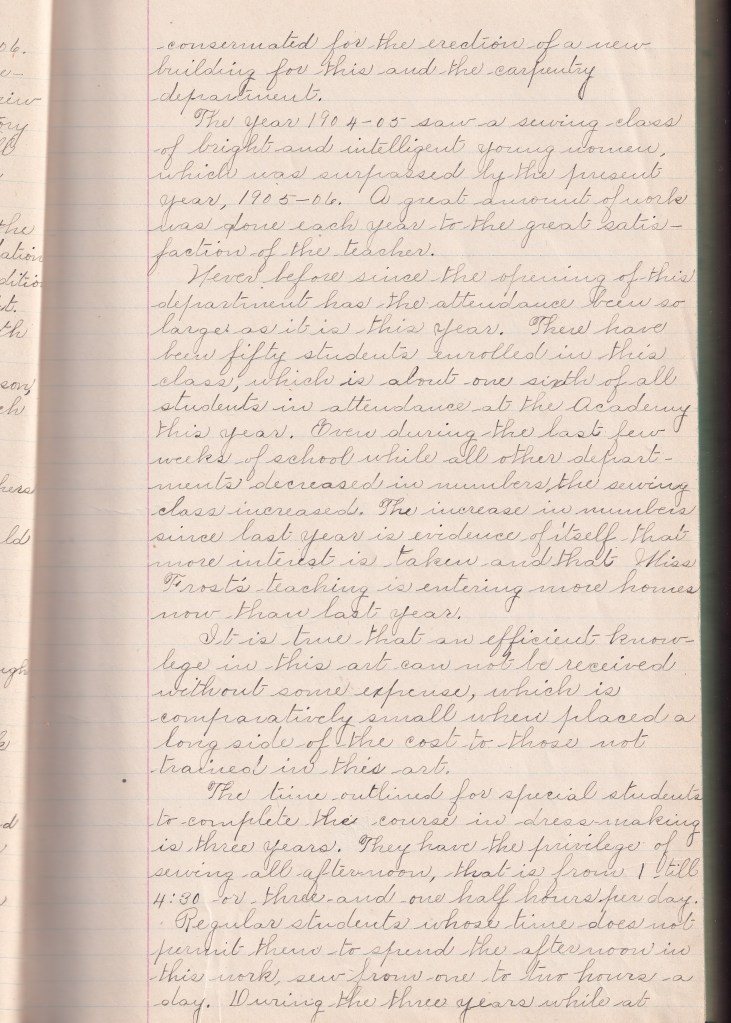 06.
e-
view
ory
ll
the
lation
ditio
t.
th
son,
ch
hers
ld
ugh
k
d
consermated for the erection of a new
building for this and the carpentry
department.
The year 1904-05 saw a sewing class
of bright and intelligent young women,
which was surpassed by the present
year, 1905-06. A great amount of work
was done each year to the great satis-
faction of the teacher.
Never before since the opening of this
department has the attendance been so
large as it is this year. There have
been fifty students enrolled in this
class, which is about one sixth of all
students in attendance at the Academy
this year. Even during the last few
weeks of school while all other depart-
ments decreased in numbers, the sewing
class increased. The increase in numbers
since last year is evidence of itself that
more interest is taken and that Miss
Frost's teaching is entering more homes
now than last year.
It is true that an efficient know-
lege in this art can not be received
without some expense, which is
comparatively small when placed a
long side of the cost to those not
trained in this art.
The time outlined for special students
to complete the course in dress-making
is three years. They have the privilege of
sewing all afternoon, that is from 1 till
4:30 or three and one half hours per day.
Regular students whose time does not
permit them to spend the afternoon in
this work, sew from one to two hours a
day. During the three years while at